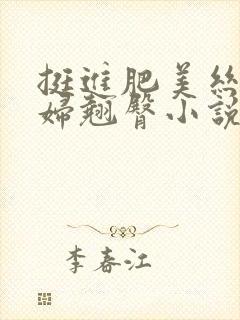 挺進肥美絲
婦翹臀小說
李春江